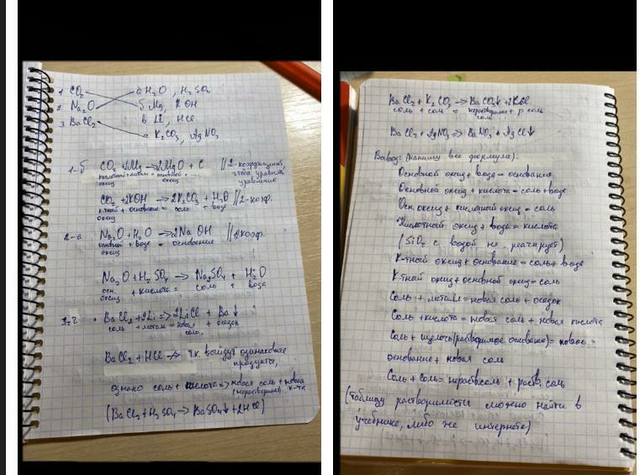 1 CO₂ а H₂O, H₂SO₄
2 Na₂O б Mg, KOH
3 BaCl₂ в Li, HCl
г K₂CO₃, AgNO₃
1-б CO₂ + Mg → MgO + C // 2-
оксид
уравнение
CO₂ + 2KOH → K₂CO₃ + H₂O // 2-коэф.
к-тный + основание = соль + вода
оксид
2-а Na₂O + H₂O → 2NaOH // коэф
вода = основание
оксид
Na₂O + H₂SO₄ → Na₂SO₄ + H₂O
осн. + кислота = соль + вода
оксид
BaCl₂ + 2Li → 2LiCl + Ba↓
соль + металл = новая + осадок
соль
BaCl₂ + HCl → т.к. выйдут одинаковые
продукты,
однако соль + кислота → новая соль + новая
к-та
(BaCl₂ + H₂SO₄ → BaSO₄↓ + 2HCl)
BaCl₂ + K₂CO₃ → BaCO₃↓ + 2KCl
соль + соль = + р соль
соль
BaCl₂ + AgNO₃ → BaNO₃ + AgCl↓
Вывод: (напишу все формулы).
Основной оксид + вода = основание
Основной оксид + кислота = соль + вода
Осн. оксид + кислотный оксид = соль
Кислотный оксид + вода = кислота
(SiO₂ с водой не реагирует)
К-тный оксид + основание = соль + вода
К-тный оксид + основной оксид = соль
Соль + металл = новая соль + осадок
Соль + кислота = новая соль + новая кислота
Соль + щелочь (растворимое основание) = новое
основание + новая соль
Соль + соль = нераств соль + раств. соль
(таблицу растворимости можно найти в
учебнике, либо же интернете)